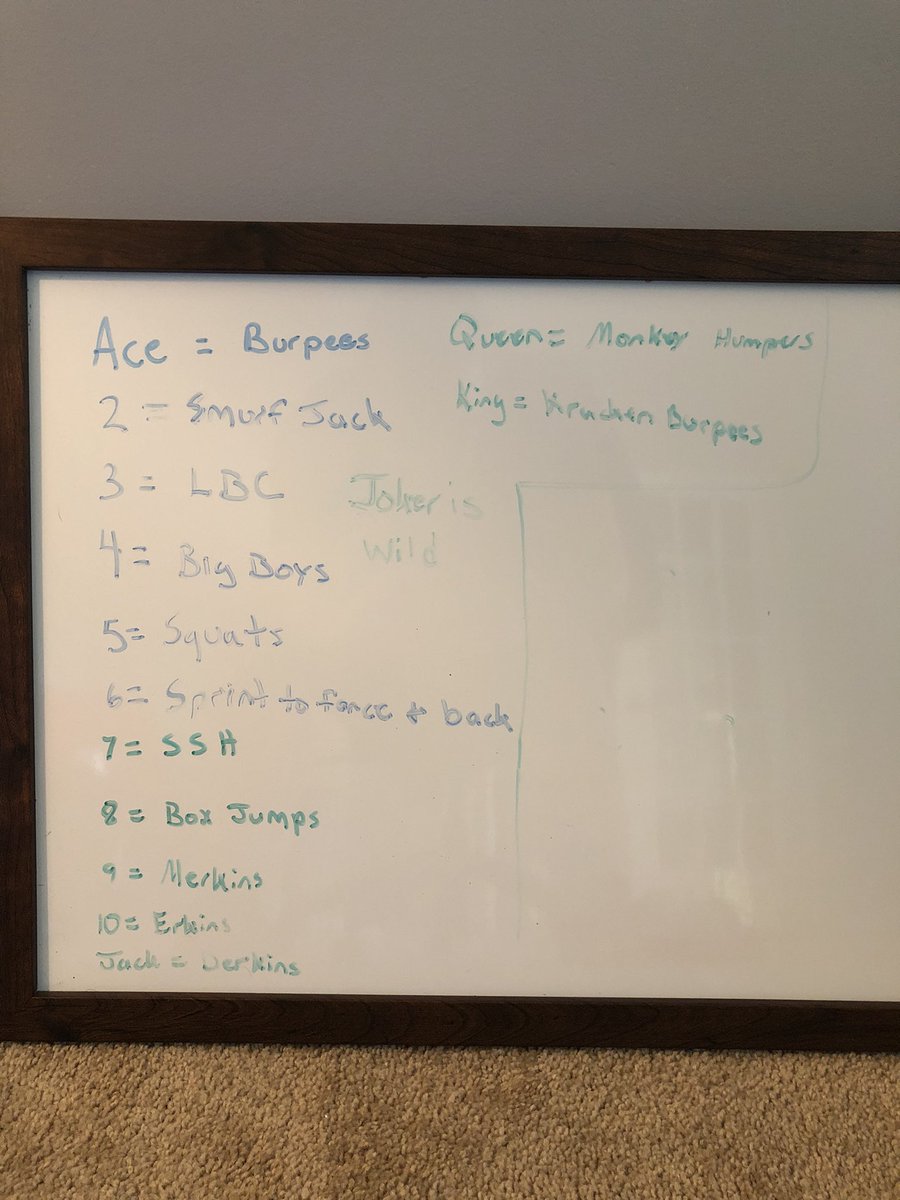 Ace = Burpees
2 = Smurf Jack
3 = LBC
4 = Big Boys
5 = Squats
6 = Sprint to fence + back
7 = SSH
8 = Box Jumps
9 = Merkins
10 = Erkins
Jack = Derkins
Joker is
Wild
Queen = Monkey Humpers
King = Kracken Burpees